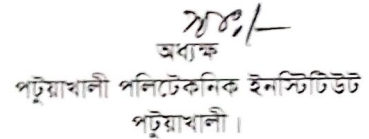 অধ্যক্ষ
পটুয়াখালী পলিটেকনিক ইনস্টিটিউট
পটুয়াখালী।